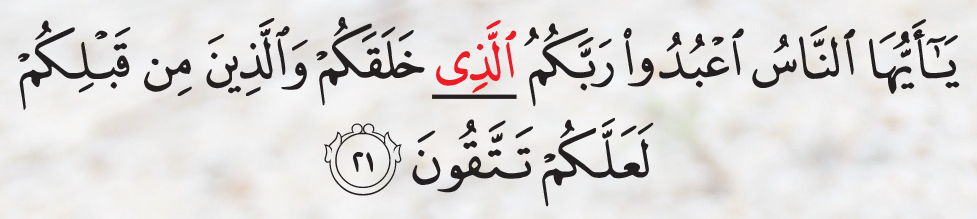 يَـٰٓأَيُّهَا ٱلنَّاسُ ٱعْبُدُوا۟ رَبَّكُمُ ٱلَّذِى خَلَقَكُمْ وَٱلَّذِينَ مِن قَبْلِكُمْ
لَعَلَّكُمْ تَتَّقُونَ ٢١